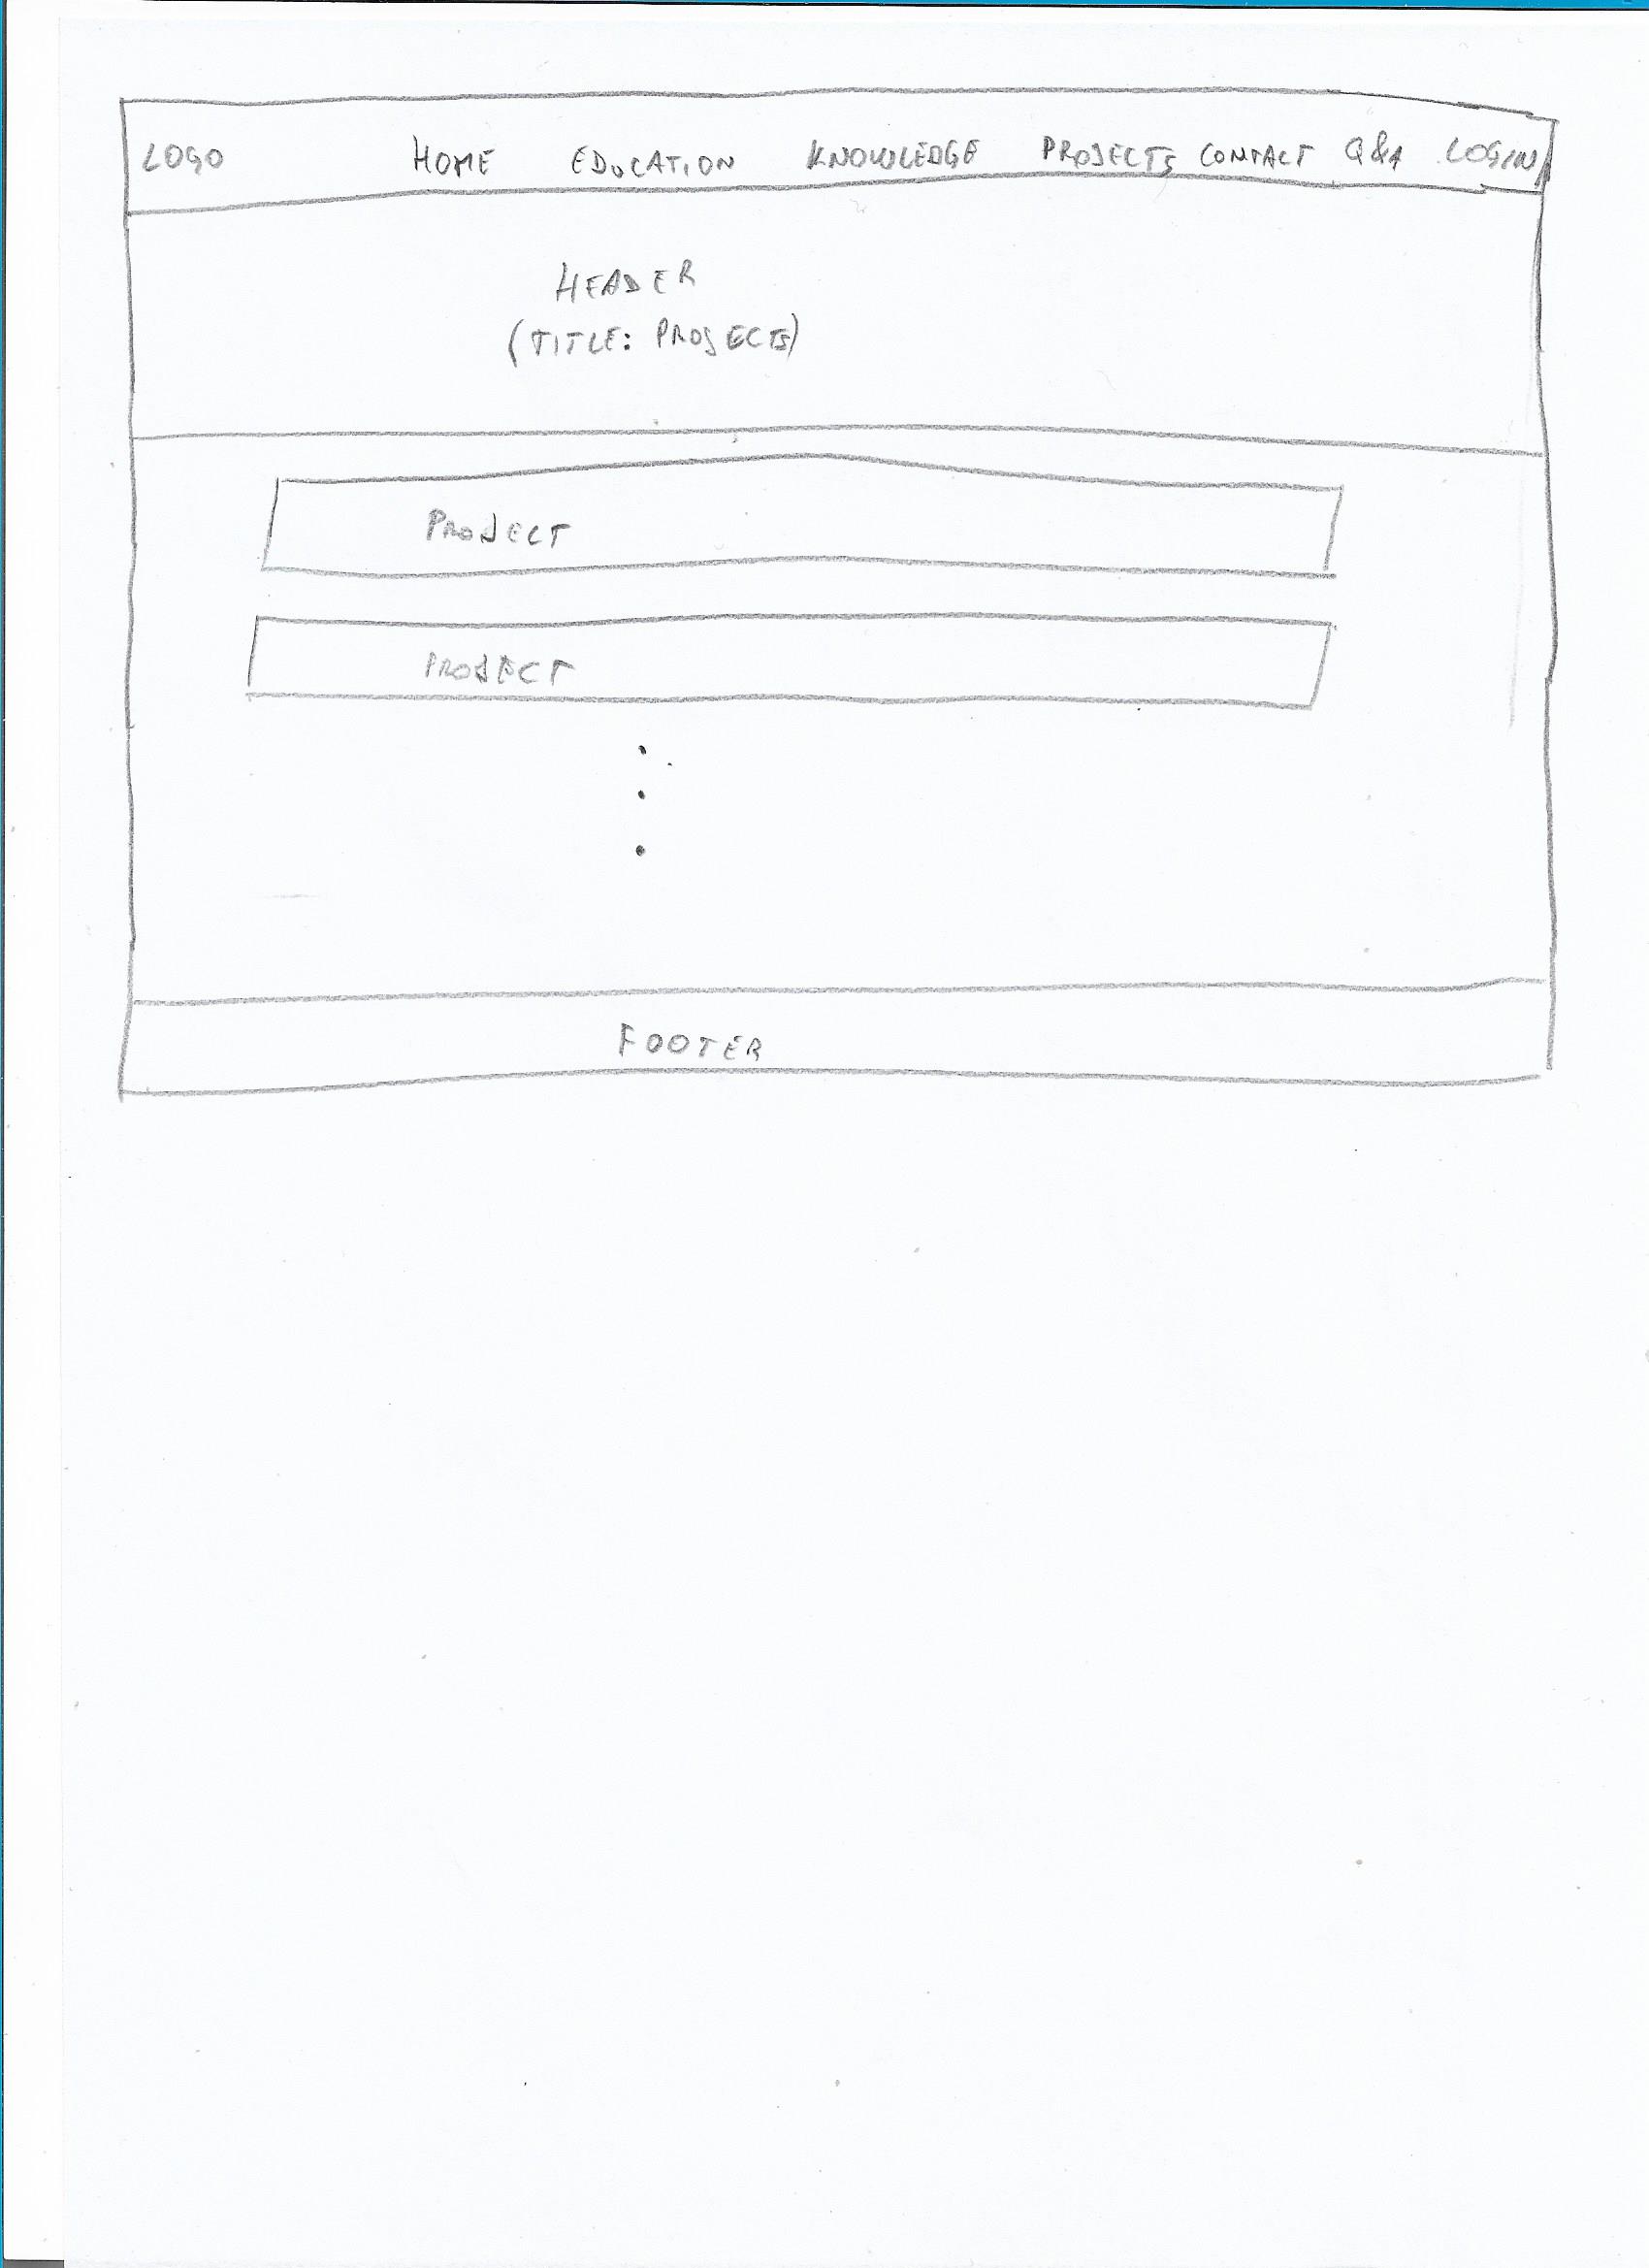 LOGO HOME EDUCATION KNOWLEDGE PROJECTS CONTACT Q&A LOGIN
HEADER
(TITLE: PROJECTS)
PROJECT
PROJECT
FOOTER